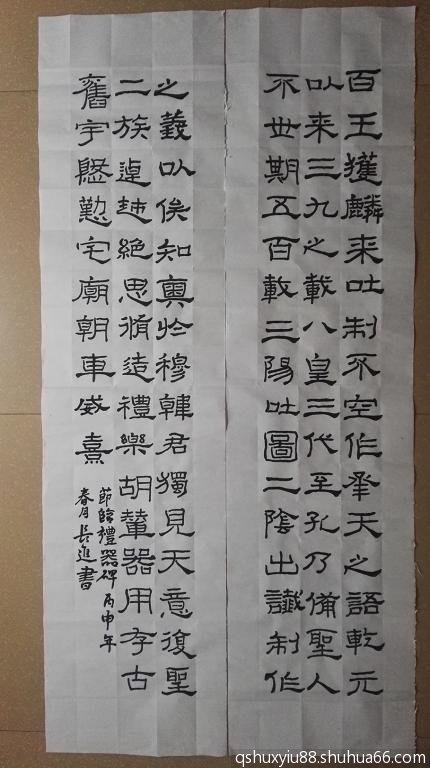 百王獲麟来吐制不空作承天之語乾元
以来三九之載八皇三代至孔乃備聖人
不世期五百載三陽吐圖二陰出讖制作
之義以俟知奧於穆韓君獨見天意復聖
二族逴越絕思脩造禮樂胡輦器用存古
舊宇慇懃宅廟朝車威熹
節臨禮器碑丙申年
春月長進書
qshuxyiu88.shuhua66.com